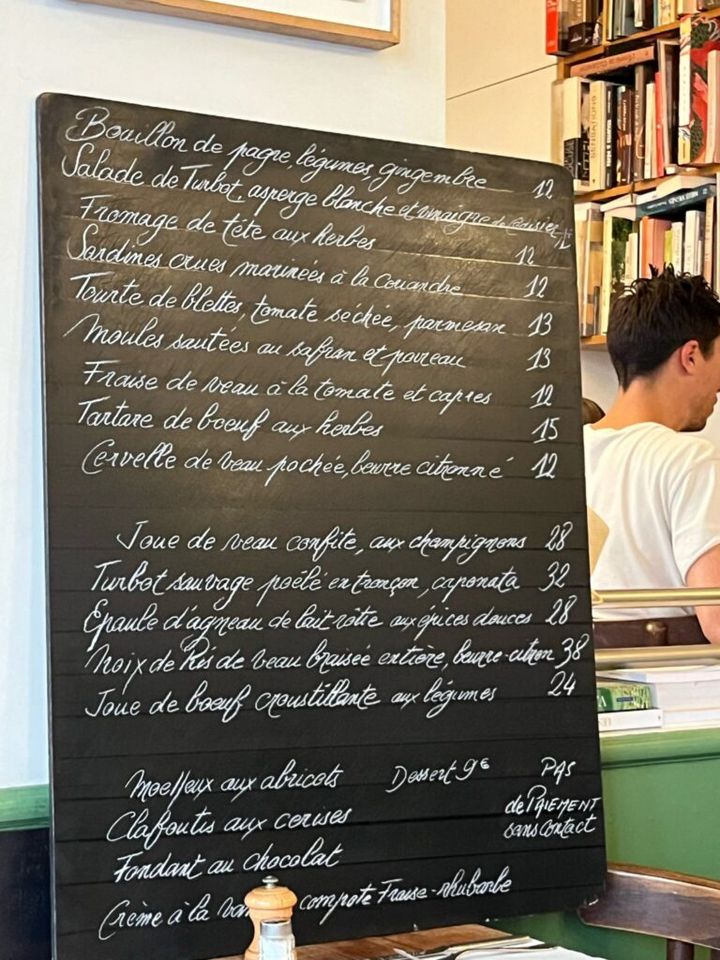 Bouillon de pagre, légumes, gingembre 12
Salade de Turbot, asperge blanche et vinaigre de cerisier 12
Fromage de tête aux herbes 12
Sardines crues marinées à la Coriandre 12
Tourte de blettes, tomate séchée, parmesan 13
Moules sautées au safran et poireau 13
Fraise de veau à la tomate et capres 12
Tartare de boeuf aux herbes 15
Cervelle de veau pochée, beurre citronné 12
Joue de veau confite, aux champignons 28
Turbot sauvage poêlé en tronçon, caponata 32
Epaule d'agneau de lait rôtie aux épices douces 28
Noix de Ris de veau braisée entière, beurre-citron 38
Joue de boeuf croustillante aux légumes 24
Moelleux aux abricots Dessert 9€ PAS
Clafoutis aux cerises de PAIEMENT
sans contact
Fondant au chocolat
Crème à la compote Fraise-rhubarbe